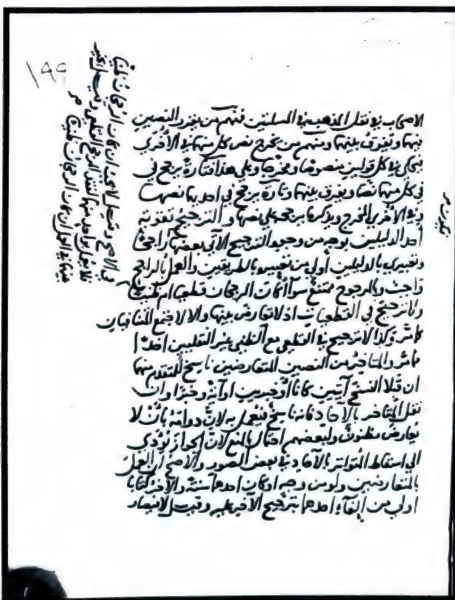 الاصحاب في نقل المذهب في المسئلتين فمنهم من يقرر النصين
فيهما ويفرق بينهما ومنهم من يخرج نص كل منهما في الاخرى
فيحكي في كل قولين منصوصا ومخرجا وعلى هذا فتارة يرجح في
في كل منهما نصها ويفرق بينهما وتارة يرجح في احديهما نصها
وفي الاخرى المخرج ويذكر ما يرجحه على نصها والترجيح تقوية
احد الدليلين بوجه من وجوه الترجيح الآتي بعضها راجحا
وتعبيري بالدليلين اولى من تعبيره بالطريقين والعمل بالراجح
واجب وبالمرجوح ممتنع سواء أكان الرجحان قطعيا ام ظنيا
ولا ترجيح في القطعيات اذ لا تعارض بينها والا لاجتمع المتنافيان
كما مر وكذا لا ترجيح في القطعي مع الظني غير النقليين
كما مر والمتأخر من النصين المتعارضين ناسخ للمتقدم منهما
ان قبلا النسخ آيتين كانا او خبرين او آية وخبرا وان
نقل المتأخر بالآحاد فانه ناسخ فيعمل به لان دوامه بان لا
يعارض مظنون ولبعضهم احتمال بالمنع لان الجواز يؤدي
الى اسقاط المتواتر بالآحاد في بعض الصور والاصح ان العمل
بالمتعارضين ولو من وجه او كان احدهما سنة والآخر كتابا
اولى من الغاء احدهما بترجيح الآخر عليه وقيل لا فيصار
١٩٩